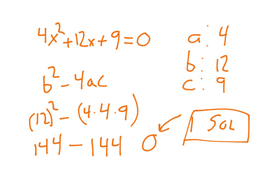 4x²+12x+9=0
b²-4ac
(12)²-(4·4·9)
144-144 0
a: 4
b: 12
c: 9
1 SOL